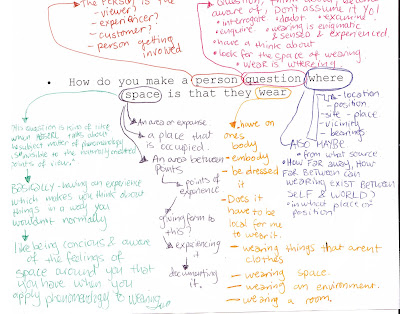 The person is the
- viewer?
- experiencer?
- customer?
- person getting
involved
Question, think about, become
aware of! Don't assume it Yo!
• interrogate • doubt • examine
• enquire • wearing is enigmatic
& sensed & experienced.
• have a think about
• look for the space of wearing
• wear is wherering
• How do you make a person question where
space is that they wear
This question is kind of like
what HEGEL says about
subject matter of phenomenology
points of view"
BASICALLY - having an experience
which makes you think about
things in a way you
wouldn't normally
like being concious & aware
of the feelings of
space around you that
you have when you
apply phenomenology to wearing
An area or expanse
a place that
is occupied.
An area between
points
points of
experience
giving form to
this?
experiencing
it
documenting
it.
- have on
ones
body
- embody
- be dressed
it
- Does it
have to be
local for me
to wear it.
- wearing things that arent
clothes
- wearing space.
- wearing an environment.
- wearing a room.
- location
- position
- site - place
- vicinity
- bearings
ALSO MAYBE
• from what source
• How far away, How
far between can
wearing EXIST BETWEEN
SELF & WORLD?
• in what place or
position